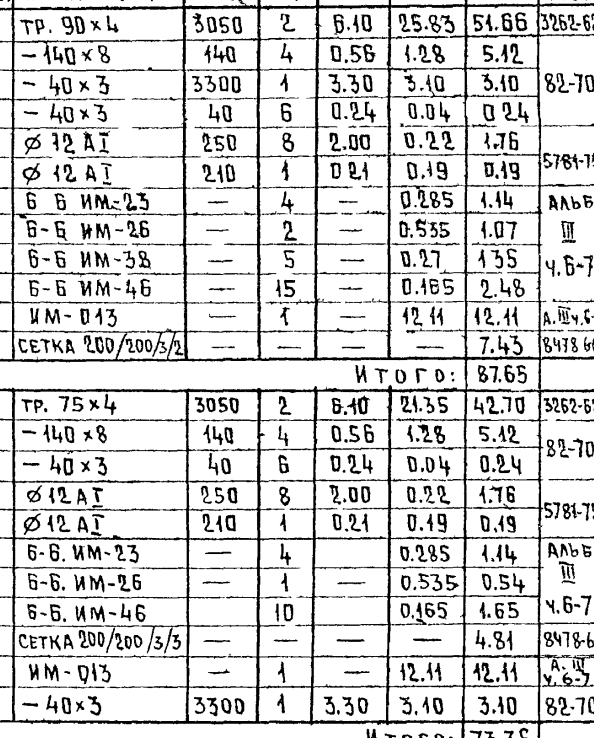 ТР. 90×4 3050 2 6.10 25.83 51.66 3262-62
–140×8 140 4 0.56 1.28 5.12
– 40×3 3300 1 3.30 3.10 3.10 82-70
– 40×3 40 6 0.24 0.04 0 24
Ø 12 АI 250 8 2.00 0.22 1.76
Ø 12 АI 210 1 0 21 0.19 0.19 5781-75
Б Б ИМ-23 — 4 0.285 1.14 АЛЬБ
Б-Б ИМ-26 — 2 — 0.535 1.07 III
Б-Б ИМ-38 — 5 — 0.27 1 35 Ч.6-7
Б-Б ИМ-46 — 15 — 0.165 2.48
ИМ-013 — 1 — 12 11 12.11 А.III Ч.6-
СЕТКА 200/200/3/2 — — — — 7.43 8478 66
ИТОГО: 87.65
ТР. 75×4 3050 2 6.10 21.35 42.70 3262-62
–140 ×8 140 4 0.56 1.28 5.12
– 40×3 40 6 0.24 0.04 0.24 82-70
Ø 12 АI 250 8 2.00 0.22 1.76
Ø 12 АI 210 1 0.21 0.19 0.19 5781-75
Б-Б. ИМ-23 — 4 0.285 1.14 АЛЬБ
Б-Б. ИМ-26 — 1 — 0.535 0.54 III
Б-Б. ИМ-46 10 0.165 1.65 Ч.6-7
СЕТКА 200/200/3/3 — — — — 4.81 8478-6
ИМ-013 — 1 — 12.11 12.11 А. III Ч.6-7
– 40×3 3300 1 3.30 3.10 3.10 82-70